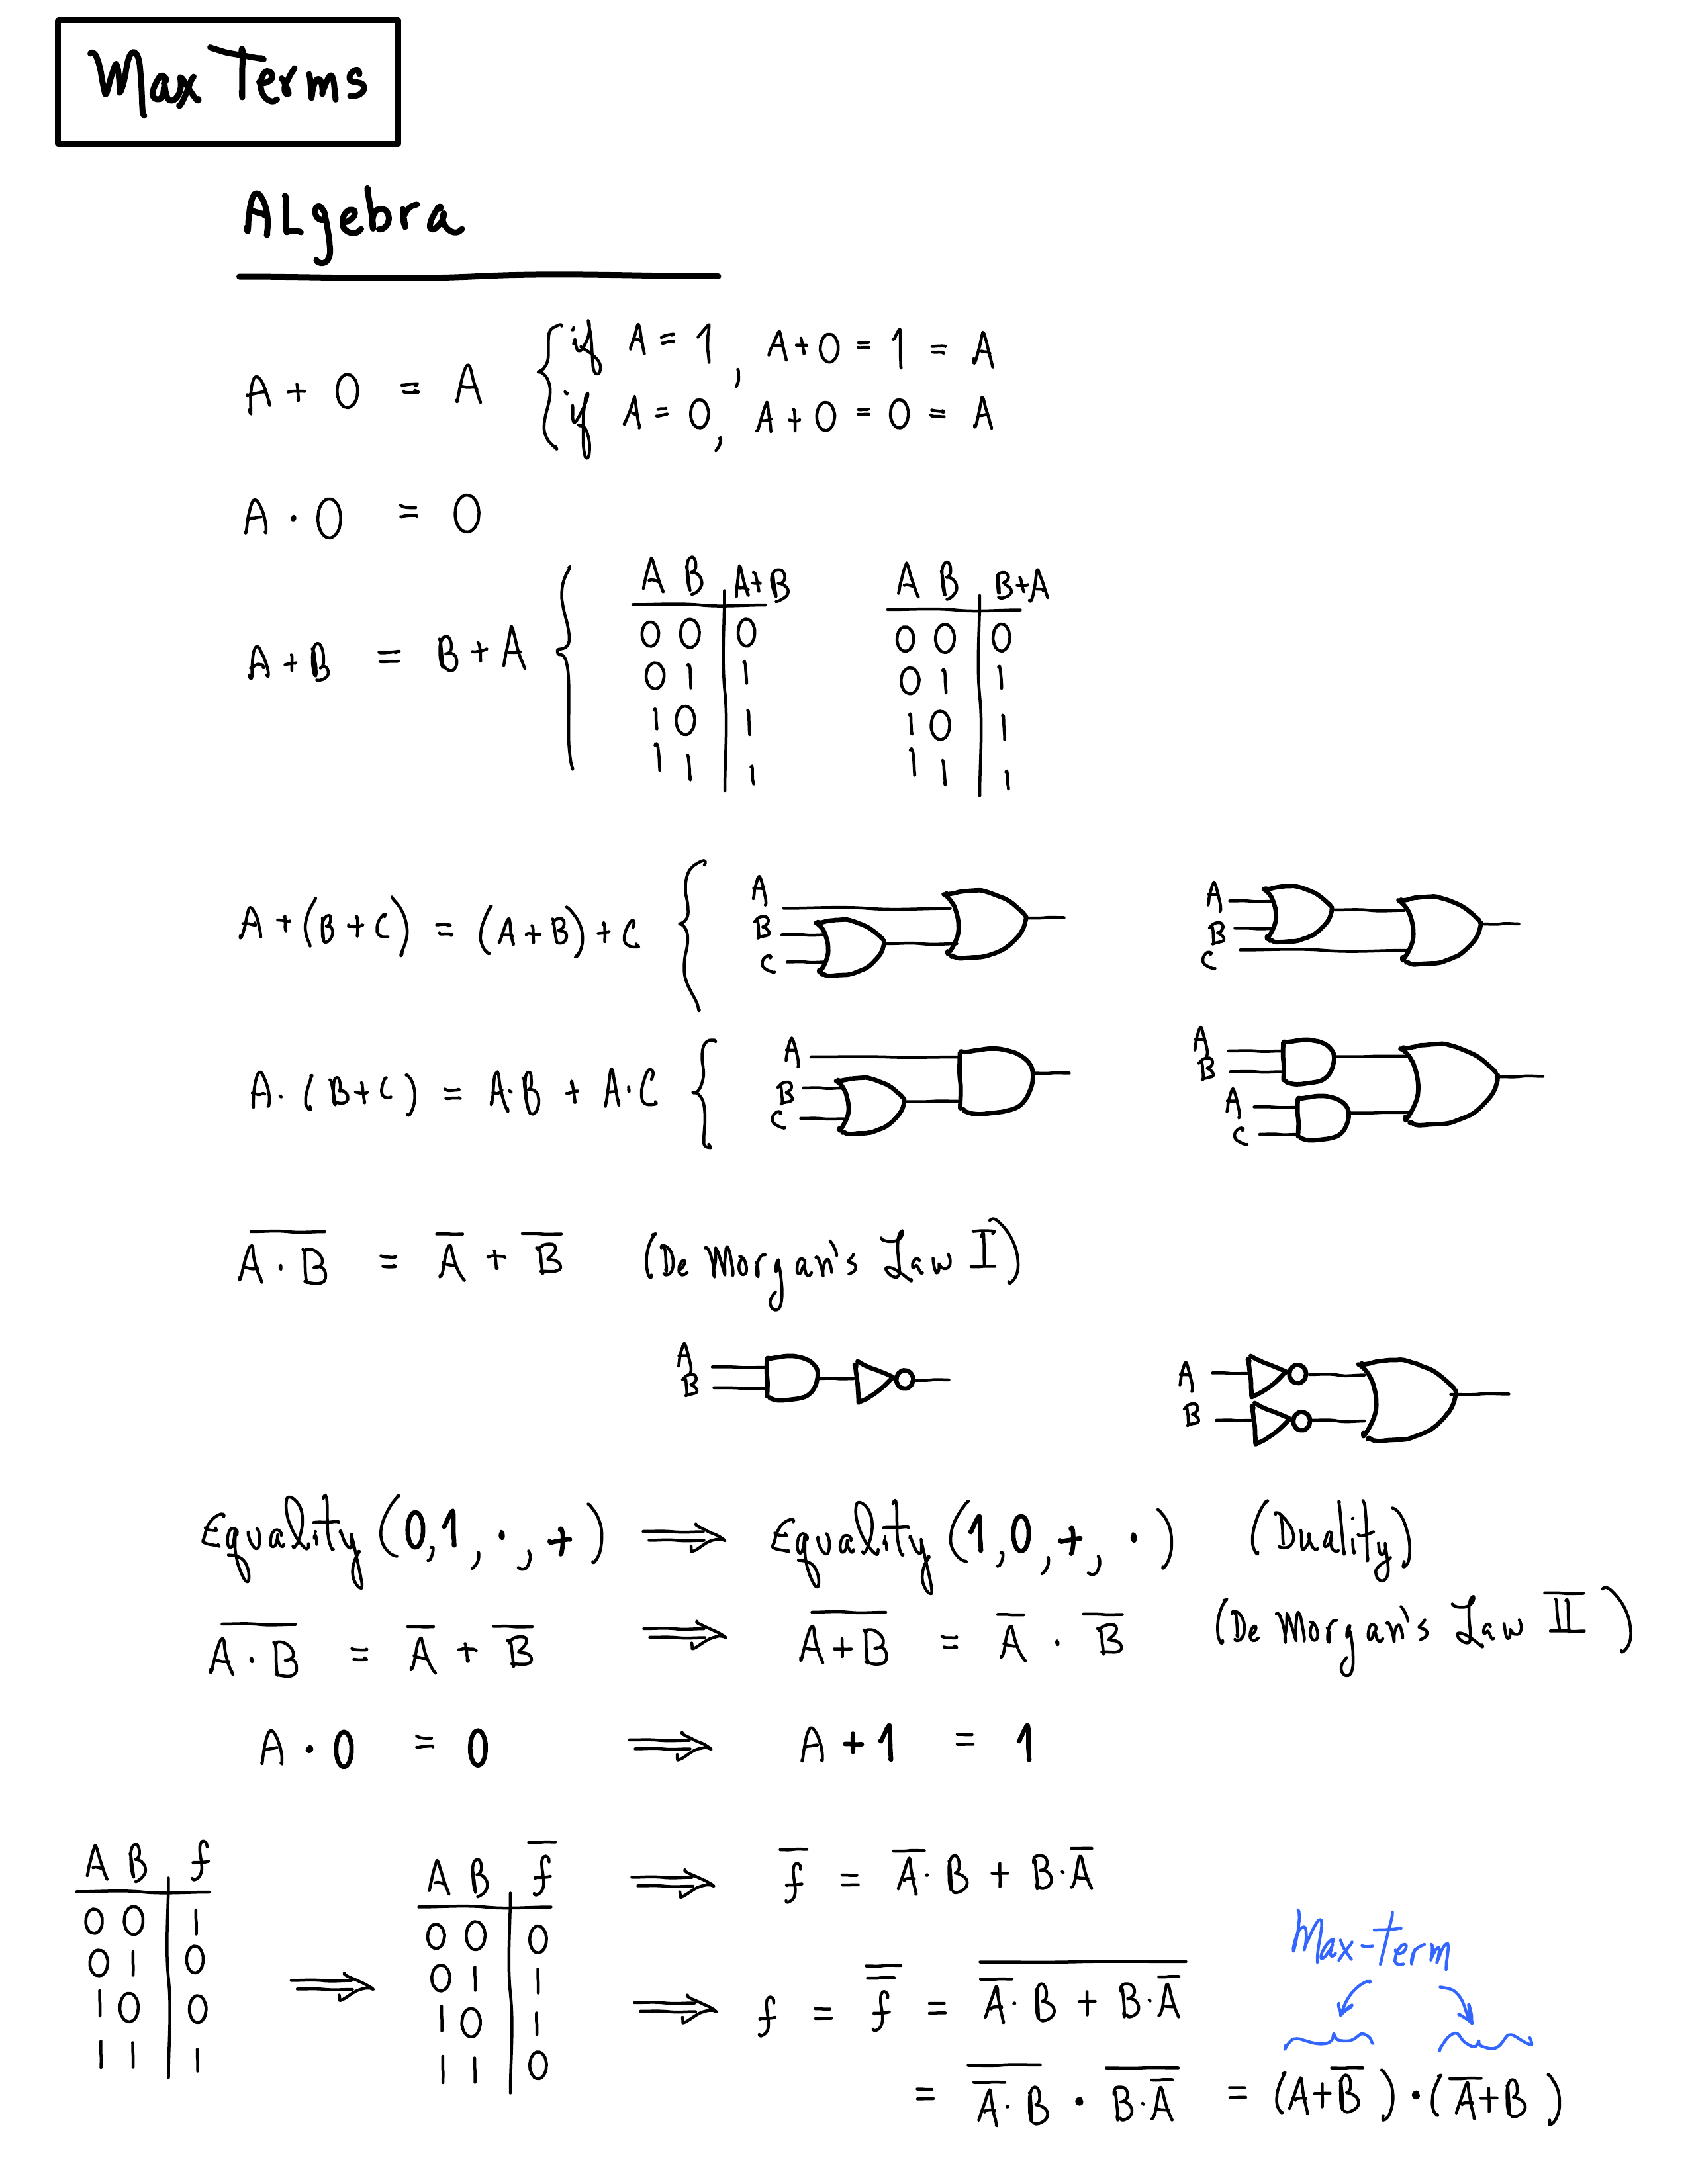 Max Terms
ALgebra
A + 0 = A { if A = 1, A+0 = 1 = A
if A = 0, A+0 = 0 = A
A · 0 = 0
A+B = B+A {
A B | A+B
0 0 | 0
0 1 | 1
1 0 | 1
1 1 | 1
A B | B+A
0 0 | 0
0 1 | 1
1 0 | 1
1 1 | 1
A+(B+C) = (A+B)+C {
A
B
C
A
B
C
A·(B+C) = A·B + A·C {
A
B
C
A
B
A
C
A̅ ̅·̅ ̅B̅ = A̅ + B̅ (De Morgan's Law I)
A
B
A
B
Equality (0,1, ·, +) ⟹ Equality (1,0,+, ·) (Duality)
A̅ ̅·̅ ̅B̅ = A̅ + B̅ ⟹ A̅+̅B̅ = A̅ · B̅ (De Morgan's Law II)
A · 0 = 0 ⟹ A + 1 = 1
A B | f
0 0 | 1
0 1 | 0
1 0 | 0
1 1 | 1
⟹
A B | f̅
0 0 | 0
0 1 | 1
1 0 | 1
1 1 | 0
⟹ f̅ = A̅·B + B·A̅
Max-term
⟹ f = f̿ = \overline{A̅·B + B·A̅}
= \overline{A̅·B} · \overline{B·A̅} = (A+B̅)·(A̅+B)